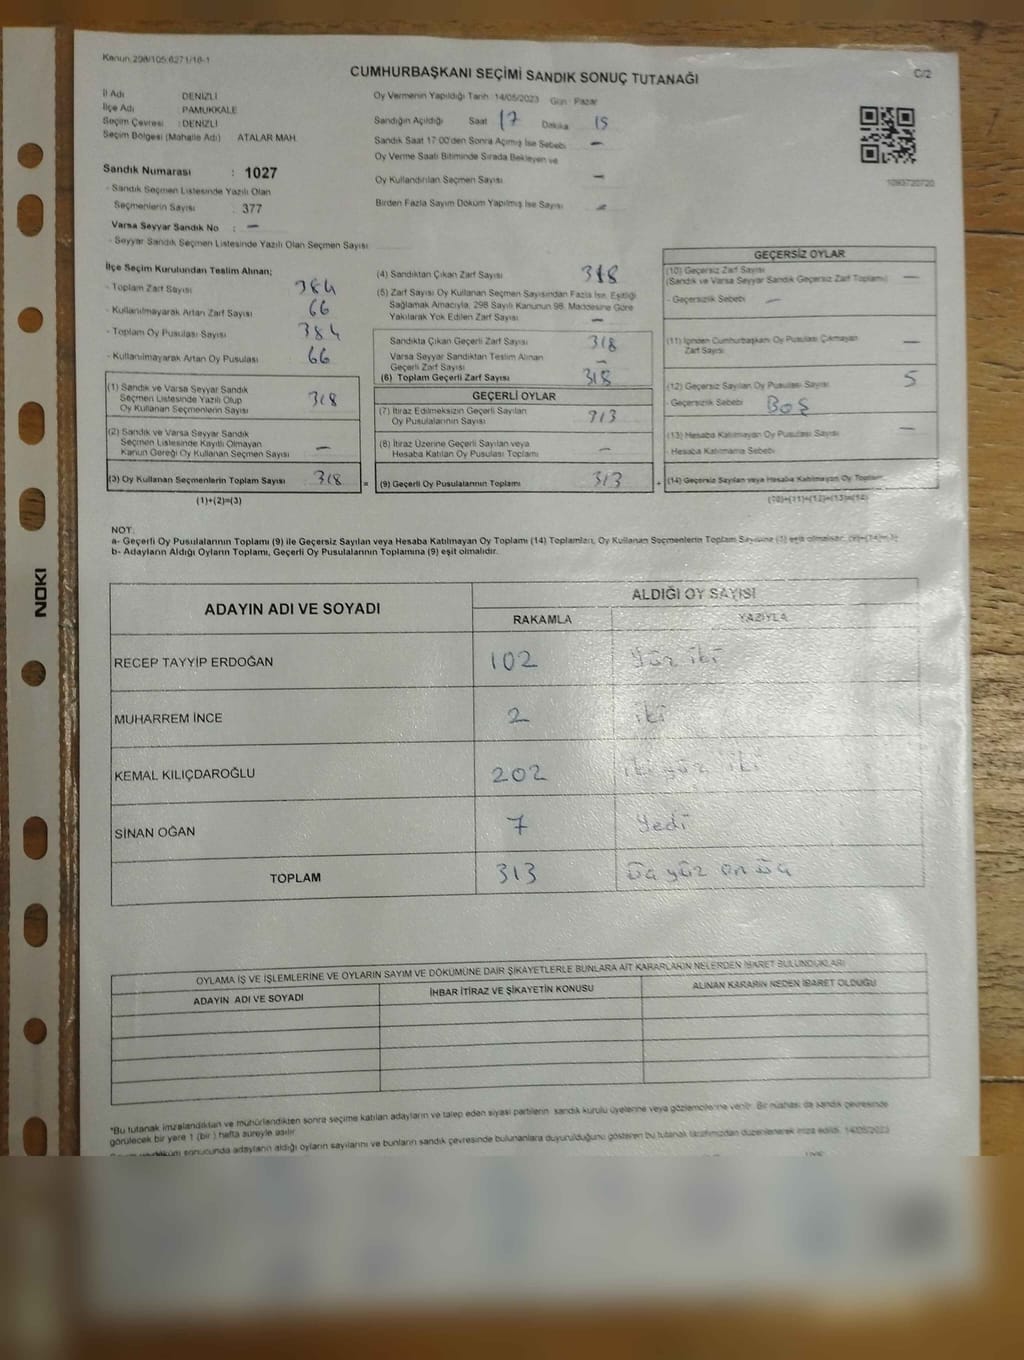 Kanun 298/105,6271/16-1
CUMHURBAŞKANI SEÇİMİ SANDIK SONUÇ TUTANAĞI
C/2
İl Adı DENİZLİ
İlçe Adı : PAMUKKALE
Seçim Çevresi : DENİZLİ
Seçim Bölgesi (Mahalle Adı) ATALAR MAH.
Oy Vermenin Yapıldığı Tarih : 14/05/2023 Gün : Pazar
Sandığın Açıldığı Saat 17 Dakika 15
Sandık Saat 17:00'den Sonra Açımış İse Sebebi –
Oy Verme Saati Bitiminde Sırada Bekleyen ve
Oy Kullandırılan Seçmen Sayısı –
Birden Fazla Sayım Döküm Yapılmış İse Sayısı –
1093720720
Sandık Numarası : 1027
- Sandık Seçmen Listesinde Yazılı Olan
Seçmenlerin Sayısı : 377
Varsa Seyyar Sandık No : –
- Seyyar Sandık Seçmen Listesinde Yazılı Olan Seçmen Sayısı
İlçe Seçim Kurulundan Teslim Alınan;
- Toplam Zarf Sayısı 384
- Kullanılmayarak Artan Zarf Sayısı 66
- Toplam Oy Pusulası Sayısı 384
- Kullanılmayarak Artan Oy Pusulası 66
(1) Sandık ve Varsa Seyyar Sandık
Seçmen Listesinde Yazılı Olup
Oy Kullanan Seçmenlerin Sayısı 318
(2) Sandık ve Varsa Seyyar Sandık
Seçmen Listesinde Kayıtlı Olmayan
Kanun Gereği Oy Kullanan Seçmen Sayısı –
(3) Oy Kullanan Seçmenlerin Toplam Sayısı 318
(1)+(2)=(3)
(4) Sandıktan Çıkan Zarf Sayısı 318
(5) Zarf Sayısı Oy Kullanan Seçmen Sayısından Fazla İse, Eşitliği
Sağlamak Amacıyla, 298 Sayılı Kanunun 98. Maddesine Göre
Yakılarak Yok Edilen Zarf Sayısı –
Sandıkta Çıkan Geçerli Zarf Sayısı 318
Varsa Seyyar Sandıktan Teslim Alınan
Geçerli Zarf Sayısı –
(6) Toplam Geçerli Zarf Sayısı 318
GEÇERLİ OYLAR
(7) İtiraz Edilmeksizin Geçerli Sayılan
Oy Pusulalarının Sayısı 313
(8) İtiraz Üzerine Geçerli Sayılan veya
Hesaba Katılan Oy Pusulası Toplamı –
= (9) Geçerli Oy Pusulalarının Toplamı 313
GEÇERSİZ OYLAR
(10) Geçersiz Zarf Sayısı –
(Sandık ve Varsa Seyyar Sandık Geçersiz Zarf Toplamı)
- Geçersizlik Sebebi –
(11) İçinden Cumhurbaşkanı Oy Pusulası Çıkmayan
Zarf Sayısı –
(12) Geçersiz Sayılan Oy Pusulası Sayısı 5
- Geçersizlik Sebebi BOŞ
(13) Hesaba Katılmayan Oy Pusulası Sayısı –
Hesaba Katılmama Sebebi
+ (14) Geçersiz Sayılan veya Hesaba Katılmayan Oy Toplamı
(10)+(11)+(12)+(13)=(14)
NOT:
a- Geçerli Oy Pusulalarının Toplamı (9) ile Geçersiz Sayılan veya Hesaba Katılmayan Oy Toplamı (14) Toplamları, Oy Kullanan Seçmenlerin Toplam Sayısına (3) eşit olmalıdır. (9)+(14)=(3)
b- Adayların Aldığı Oyların Toplamı, Geçerli Oy Pusulalarının Toplamına (9) eşit olmalıdır.
ADAYIN ADI VE SOYADI ALDIĞI OY SAYISI
RAKAMLA YAZIYLA
RECEP TAYYİP ERDOĞAN 102 Yüz iki
MUHARREM İNCE 2 iki
KEMAL KILIÇDAROĞLU 202 iki yüz iki
SİNAN OĞAN 7 Yedi
TOPLAM 313 üç yüz on üç
OYLAMA İŞ VE İŞLEMLERİNE VE OYLARIN SAYIM VE DÖKÜMÜNE DAİR ŞİKAYETLERLE BUNLARA AİT KARARLARIN NELERDEN İBARET BULUNDUKLARI
ADAYIN ADI VE SOYADI İHBAR İTİRAZ VE ŞİKAYETİN KONUSU ALINAN KARARIN NEDEN İBARET OLDUĞU
*Bu tutanak imzalandıktan ve mühürlendikten sonra seçime katılan adayların ve talep eden siyasi partilerin sandık kurulu üyelerine veya gözlemcilerine verilir. Bir nüshası da sandık çevresinde
görülecek bir yere 1 (bir) hafta süreyle asılır.
sonucunda adayların aldığı oyların sayılarını ve bunların sandık çevresinde bulunanlara duyurulduğunu gösteren bu tutanak tarafımızdan düzenlenerek imza edildi. 14/05/2023
NOKI